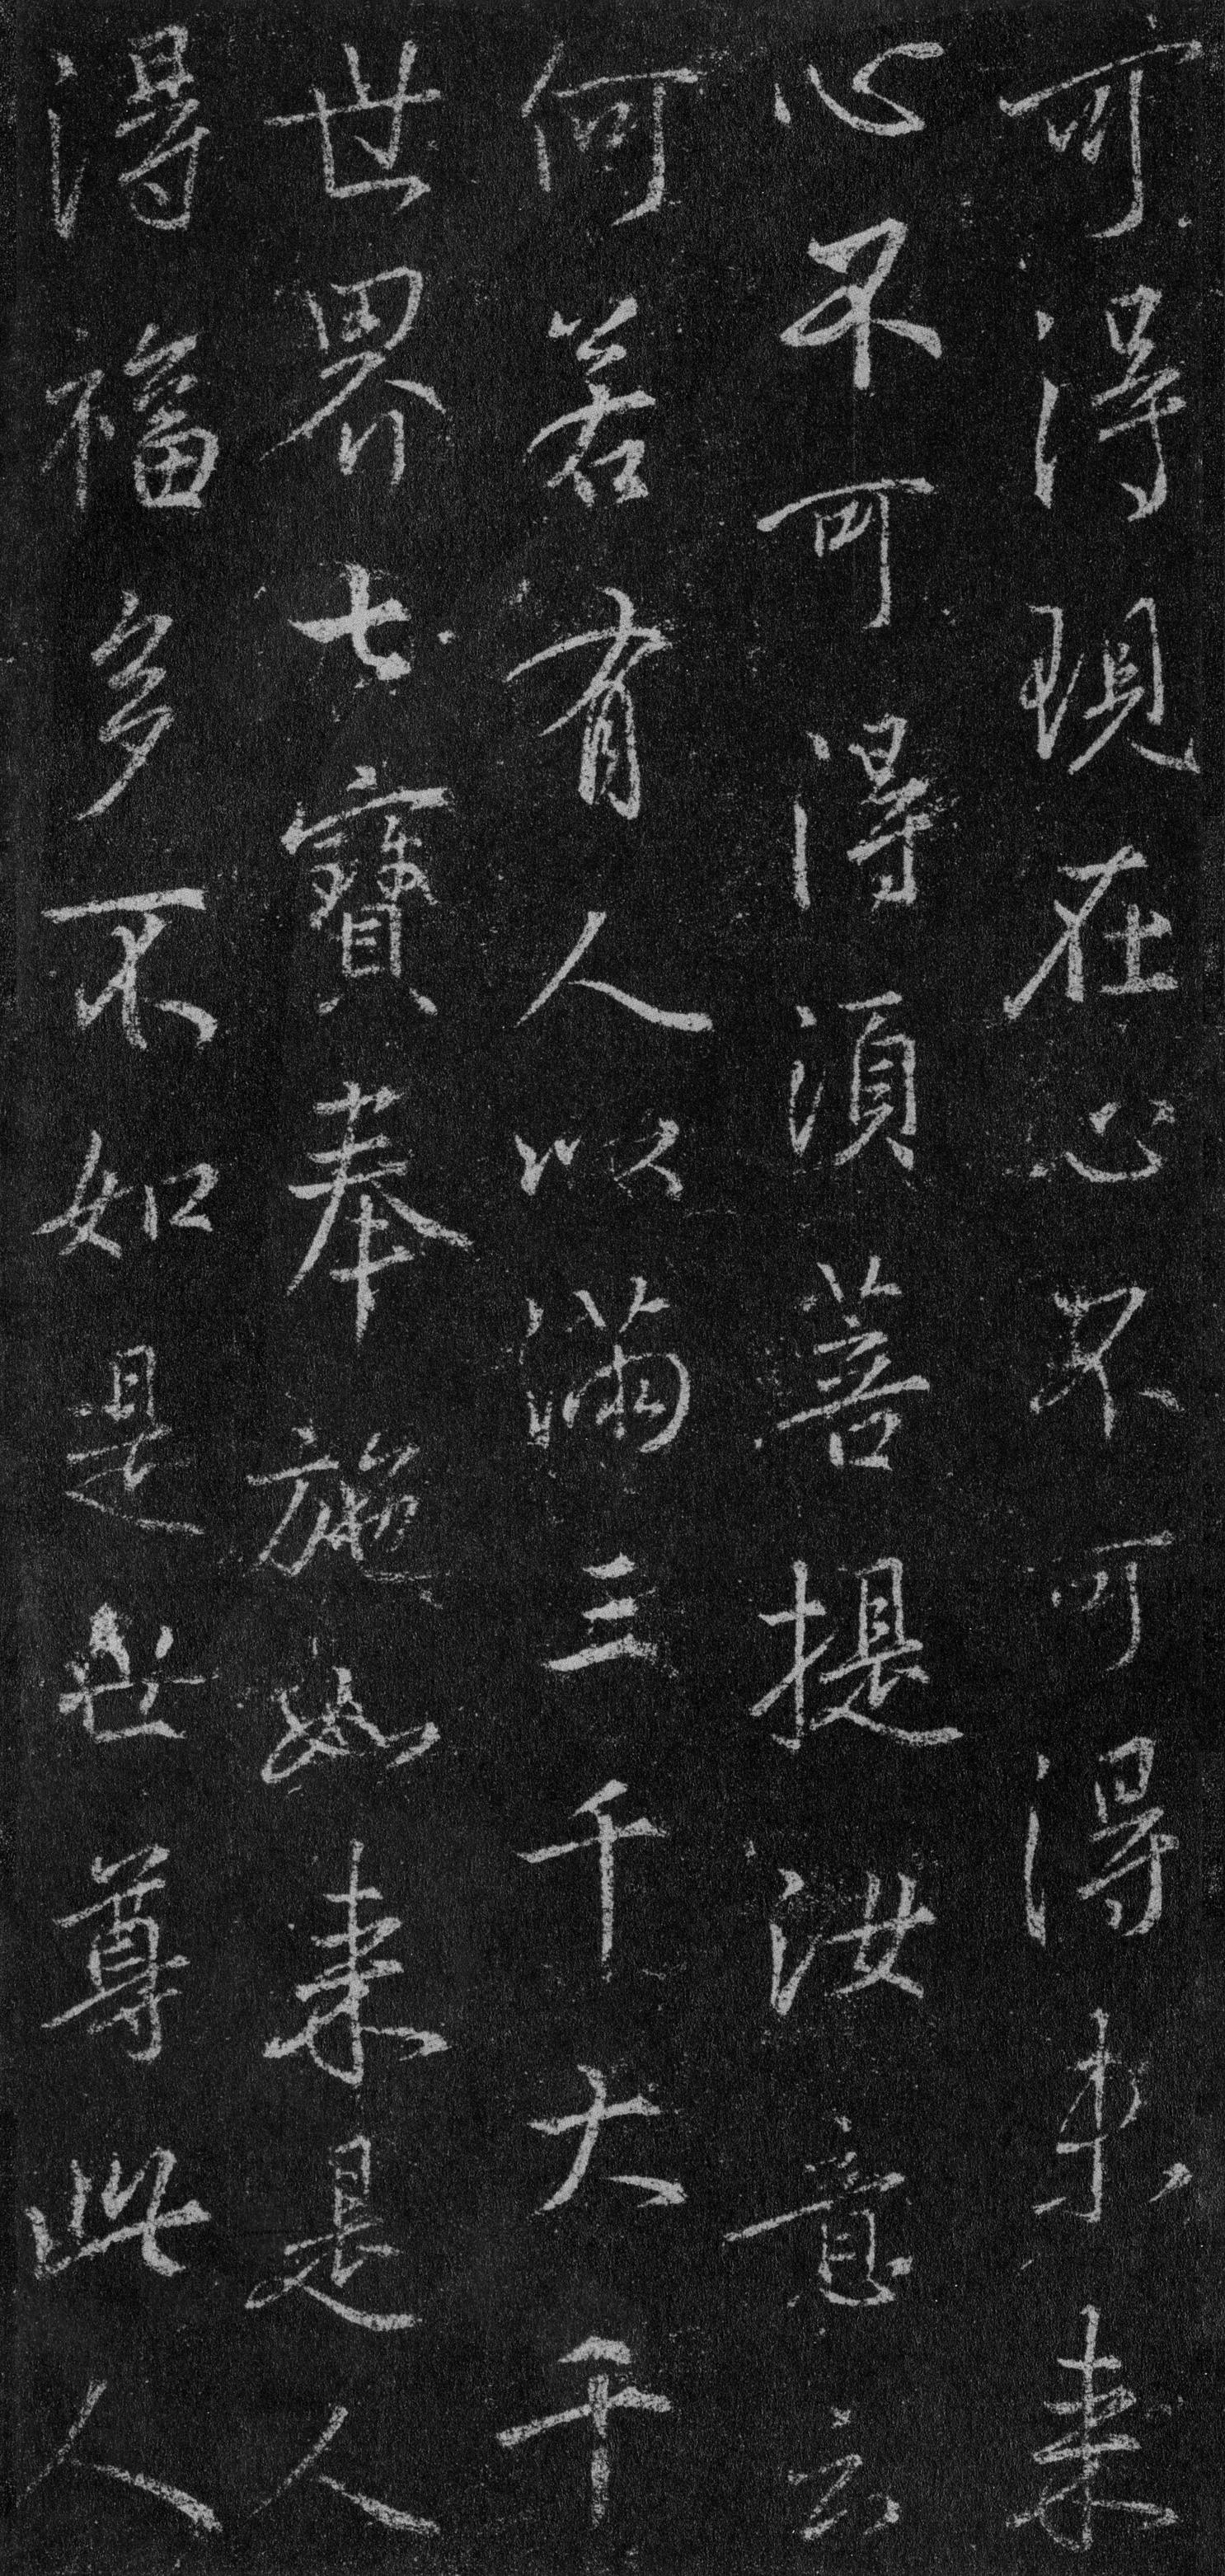 可得現在心不可得未來
心不可得須菩提汝意云
何若有人以滿三千大千
世界七寶奉施如來是人
得福多不如是世尊此人